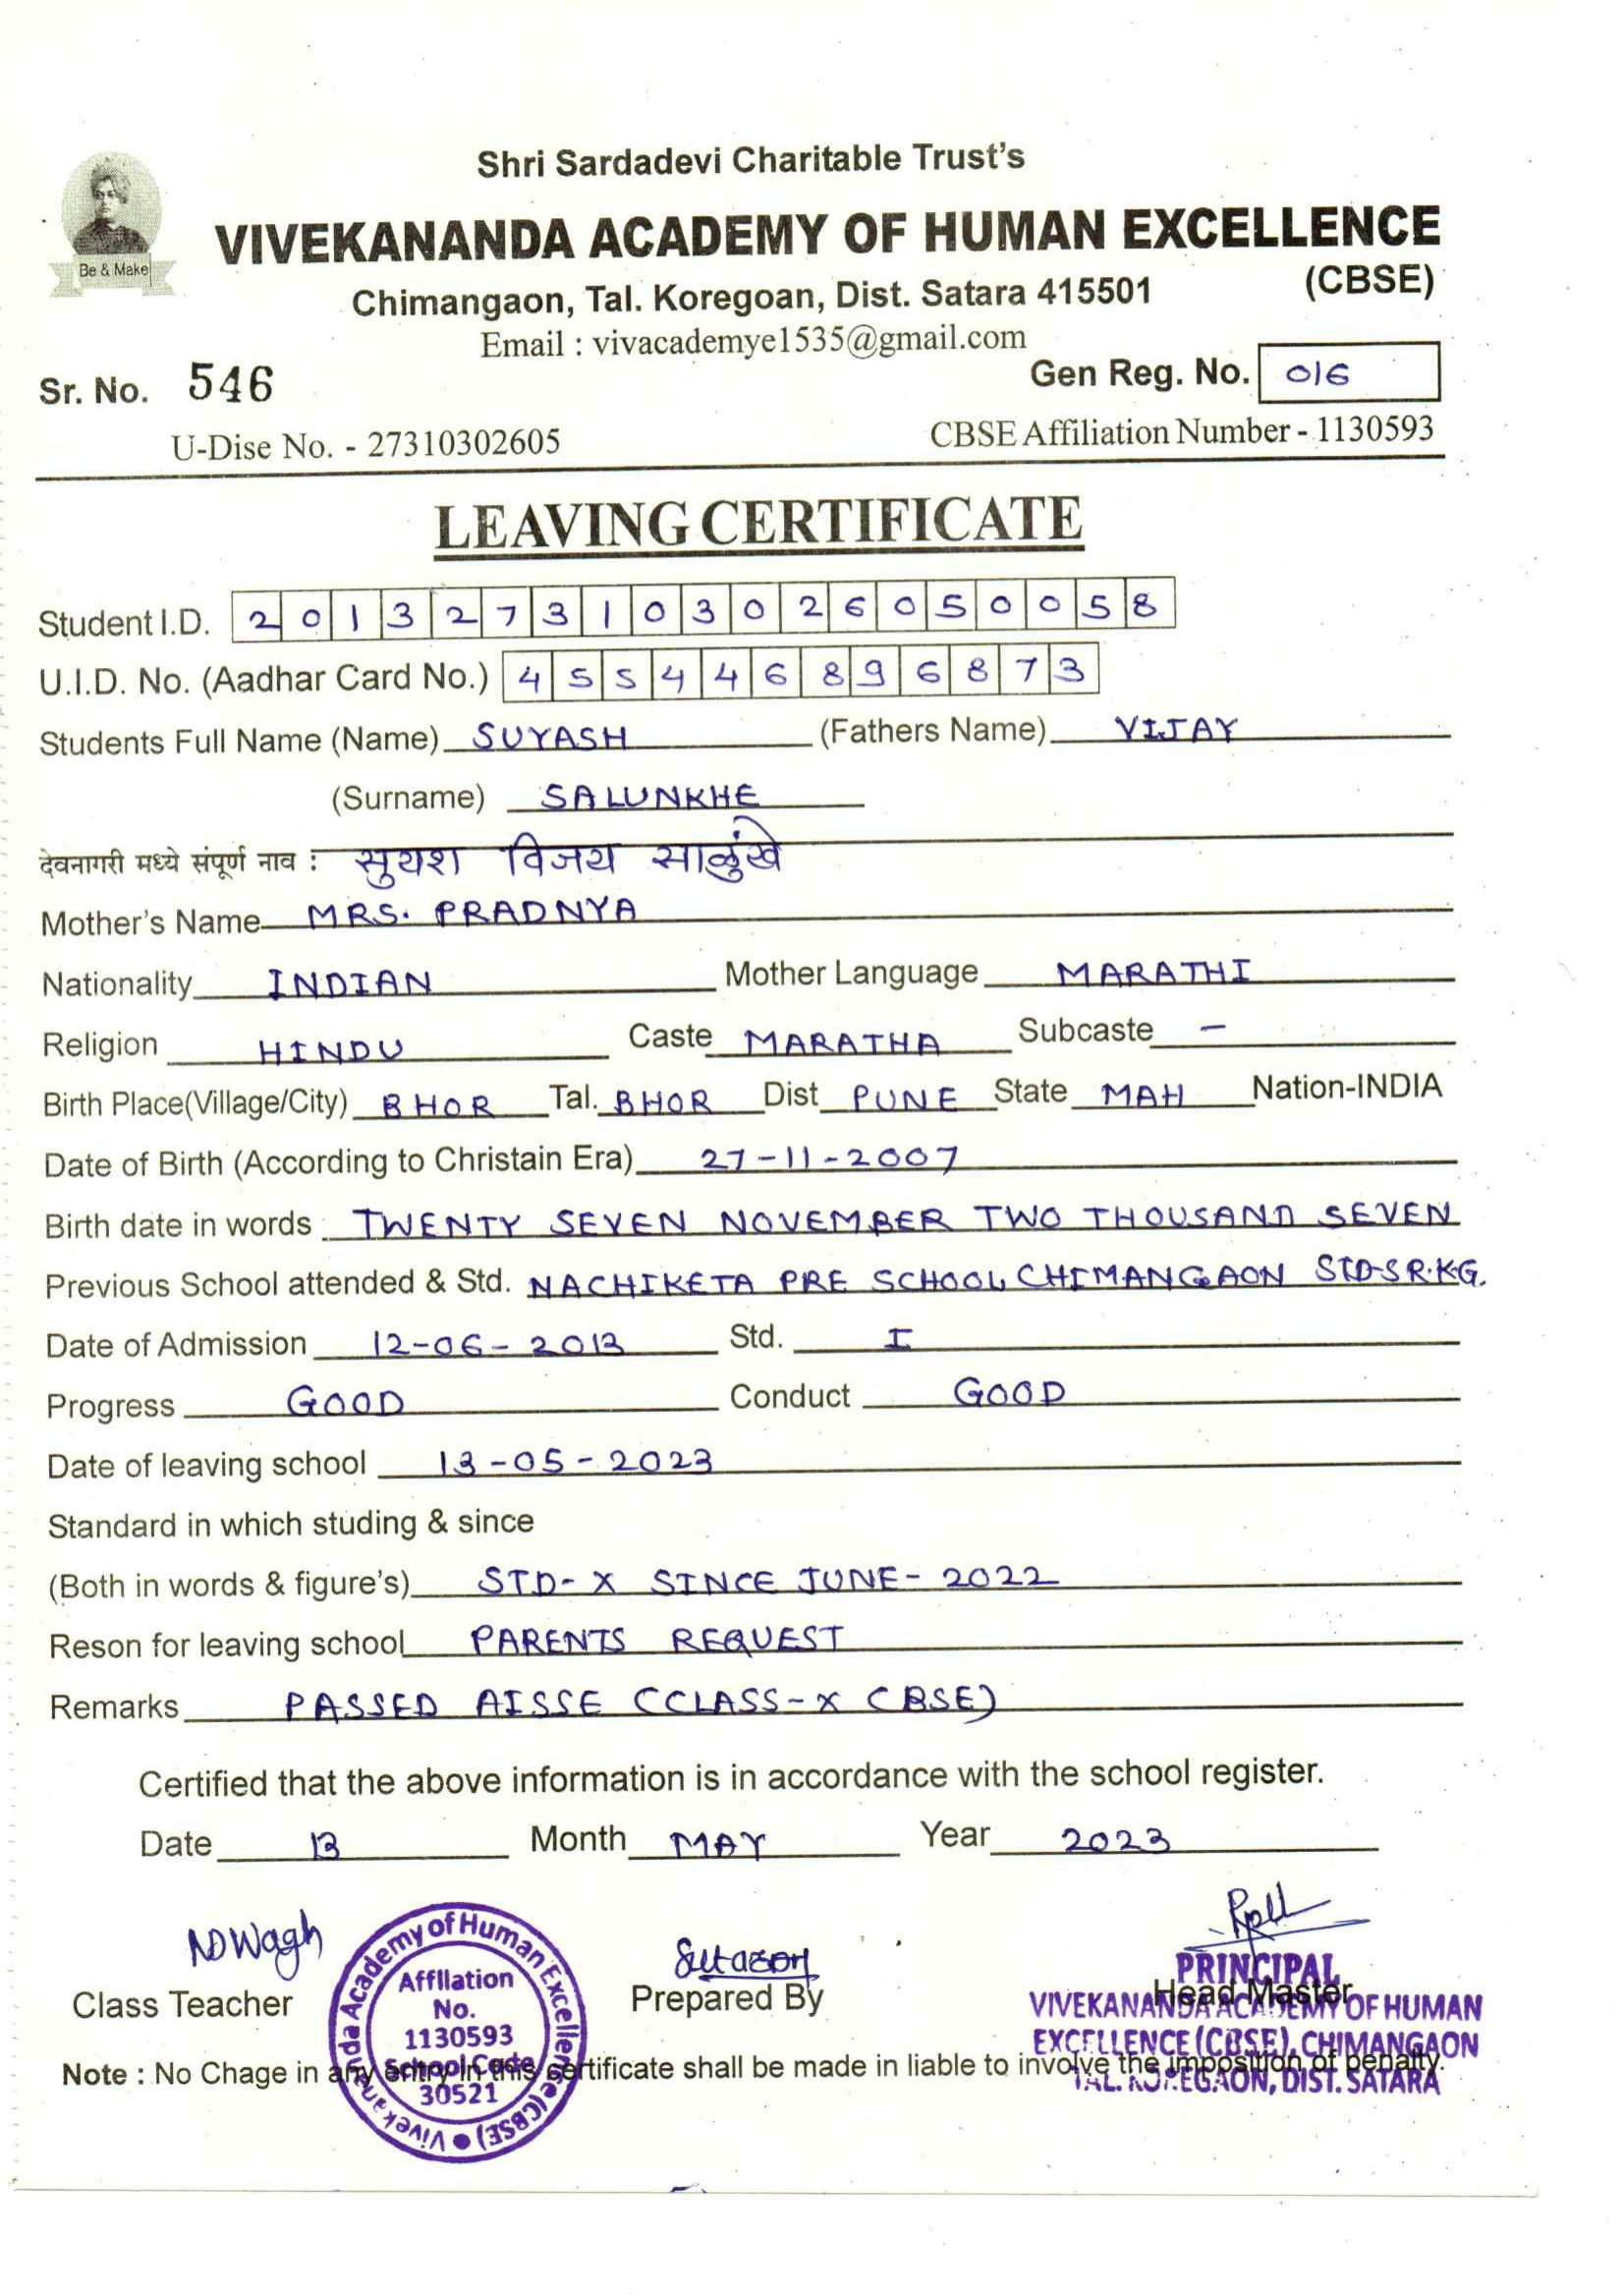 Shri Sardadevi Charitable Trust's
Be & Make
VIVEKANANDA ACADEMY OF HUMAN EXCELLENCE
(CBSE)
Chimangaon, Tal. Koregoan, Dist. Satara 415501
Email : vivacademye1535@gmail.com
Sr. No. 546 Gen Reg. No. 016
U-Dise No. - 27310302605 CBSE Affiliation Number - 1130593
LEAVING CERTIFICATE
Student I.D. 2013273103026050058
U.I.D. No. (Aadhar Card No.) 455446896873
Students Full Name (Name) SUYASH (Fathers Name) VIJAY
(Surname) SALUNKHE
देवनागरी मध्ये संपूर्ण नाव : सुयश विजय साळुंखे
Mother's Name MRS. PRADNYA
Nationality INDIAN Mother Language MARATHI
Religion HINDU Caste MARATHA Subcaste –
Birth Place(Village/City) BHOR Tal. BHOR Dist PUNE State MAH Nation-INDIA
Date of Birth (According to Christain Era) 27-11-2007
Birth date in words TWENTY SEVEN NOVEMBER TWO THOUSAND SEVEN
Previous School attended & Std. NACHIKETA PRE SCHOOL, CHIMANGAON STD-SR.KG.
Date of Admission 12-06-2013 Std. I
Progress GOOD Conduct GOOD
Date of leaving school 13-05-2023
Standard in which studing & since
(Both in words & figure's) STD-X SINCE JUNE-2022
Reson for leaving school PARENTS REQUEST
Remarks PASSED AISSE (CLASS-X CBSE)
Certified that the above information is in accordance with the school register.
Date 13 Month MAY Year 2023
NDWagh
Class Teacher Prepared By Head Master
PRINCIPAL
VIVEKANANDA ACADEMY OF HUMAN
EXCELLENCE (CBSE), CHIMANGAON
TAL. KOREGAON, DIST. SATARA
Vivekananda Academy of Human Excellence (CBSE)
Affilation
No.
1130593
School Code
30521
Note : No Chage in any entry in this certificate shall be made in liable to involve the imposition of penalty.